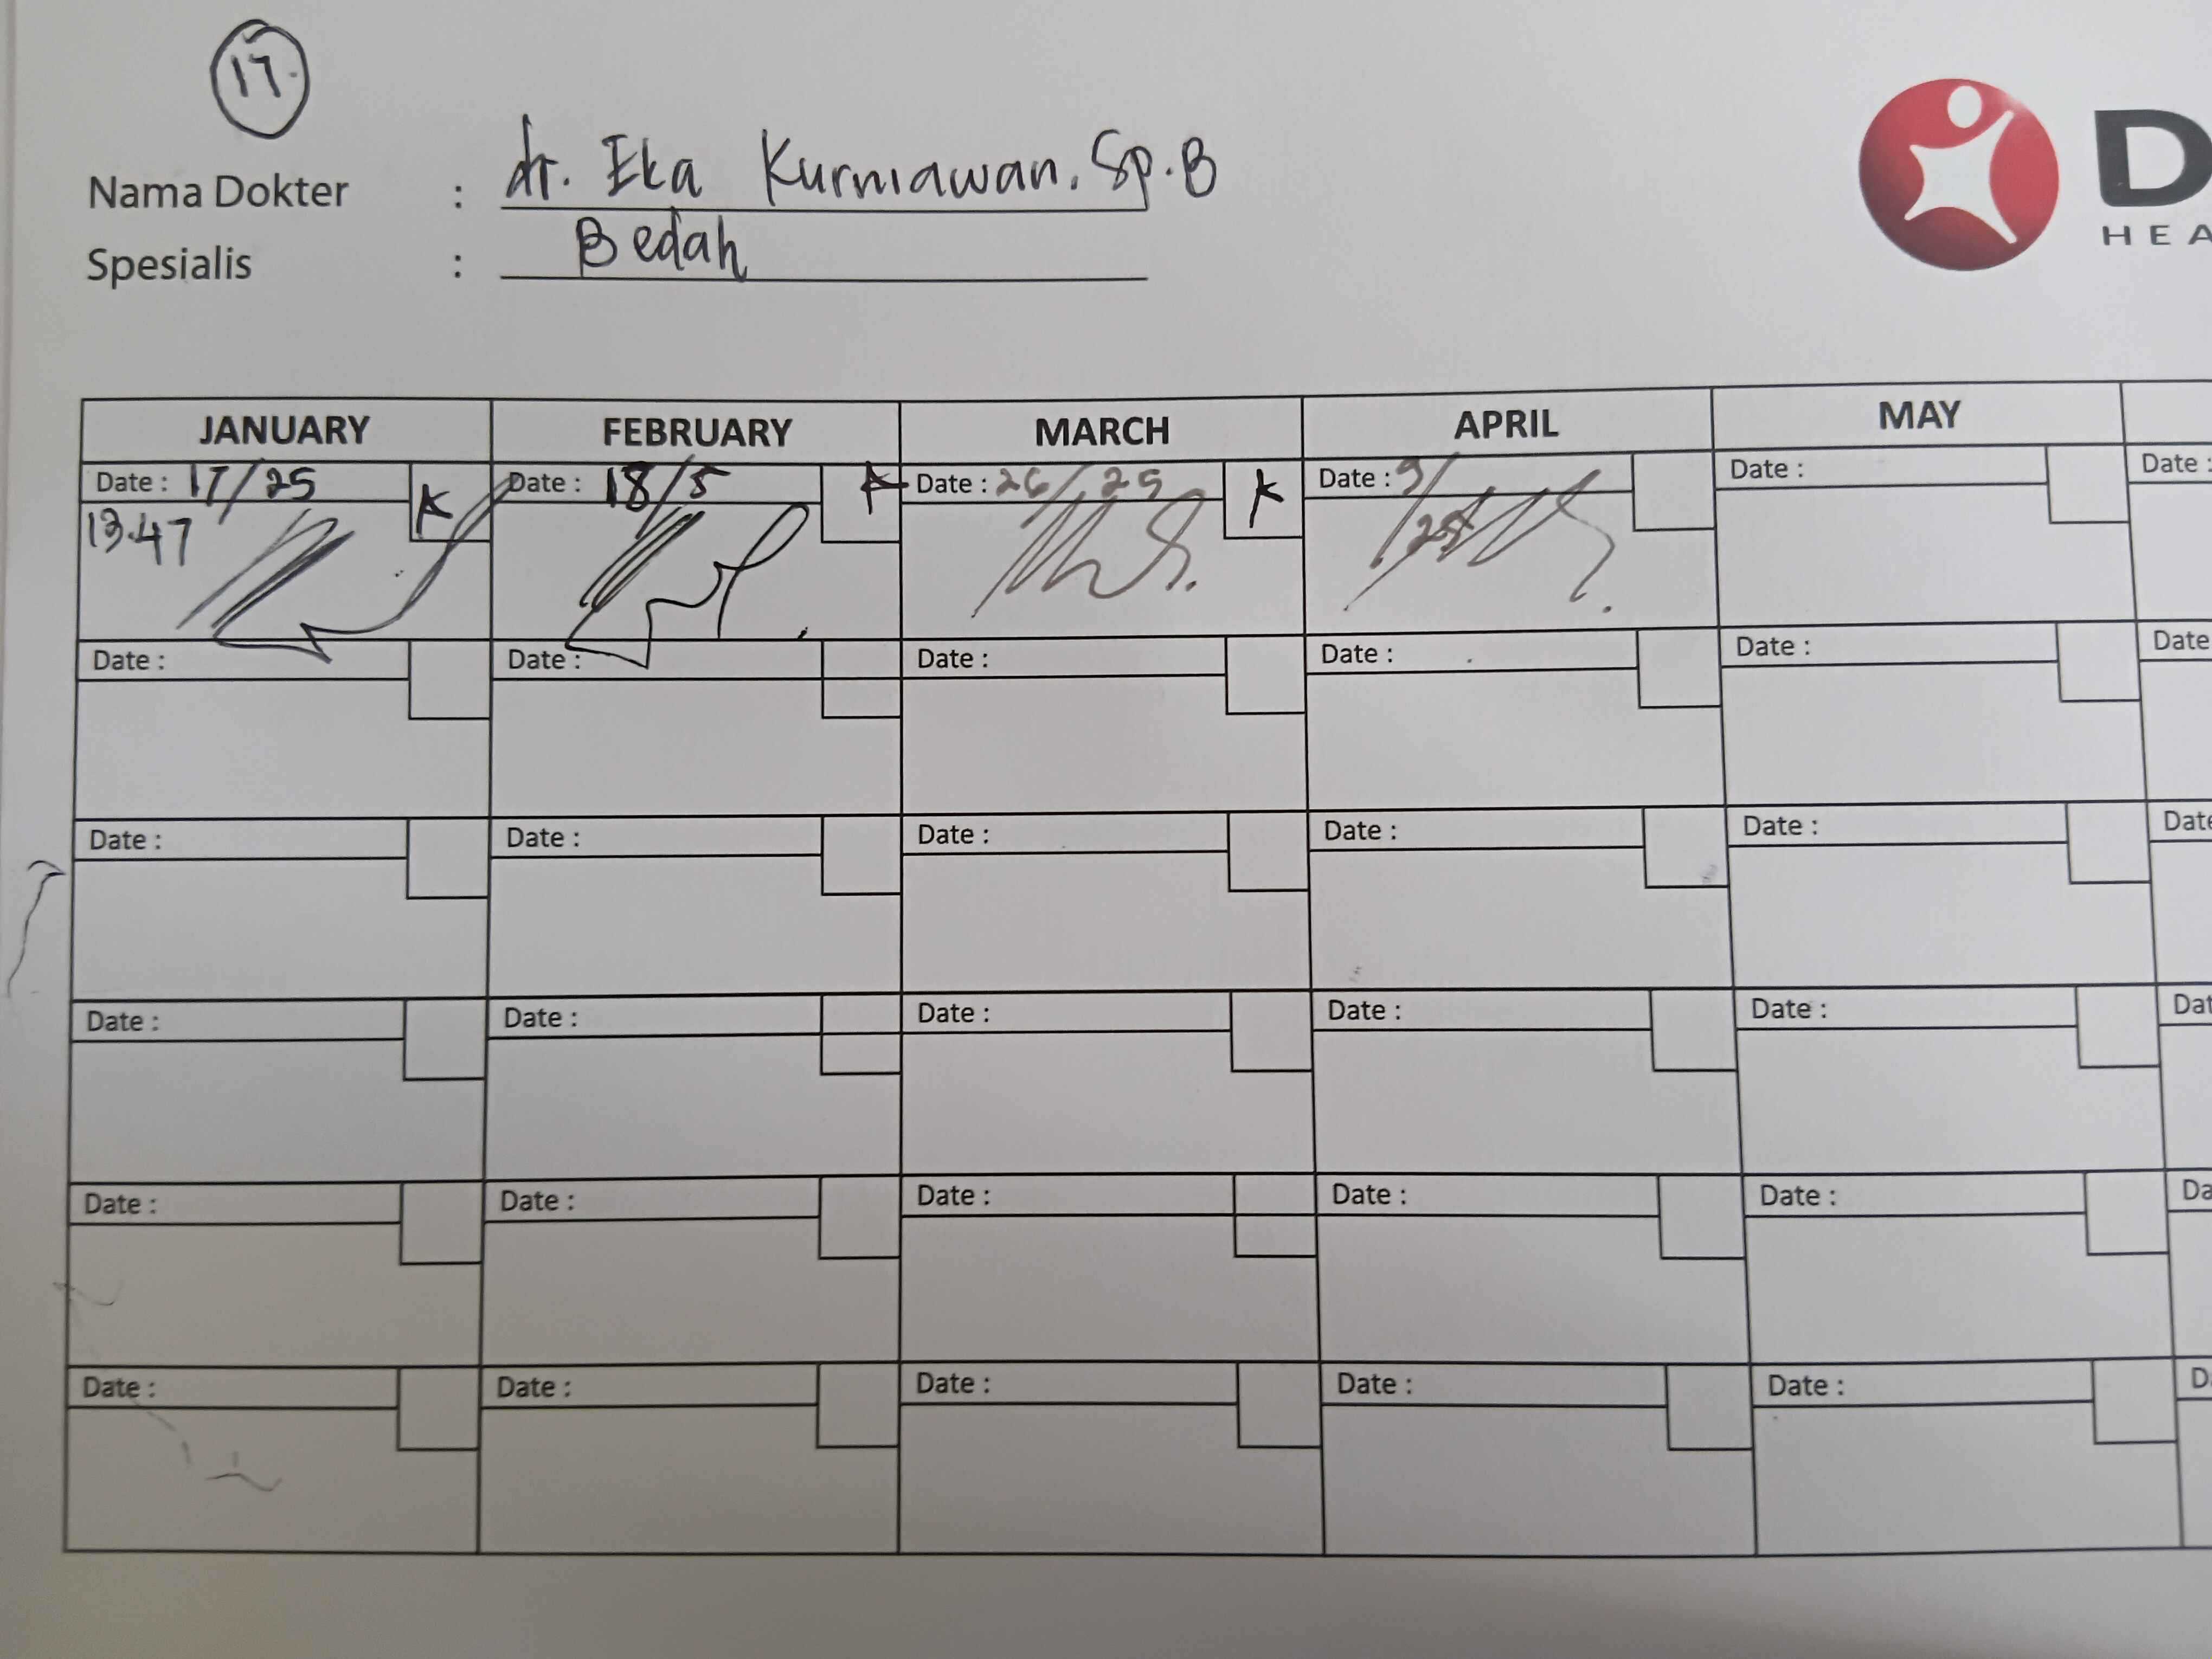 17.
Nama Dokter : dr. Eka Kurniawan, Sp.B
Spesialis : Bedah
D
HEA
JANUARY FEBRUARY MARCH APRIL MAY
Date : 17/25 A Date : 18/5 A Date : 26/25 A Date : 9/ Date : Date :
13.47 25
Date : Date : Date : Date : Date : Date
Date : Date : Date : Date : Date : Date
Date : Date : Date : Date : Date : Dat
Date : Date : Date : Date : Date : Da
Date : Date : Date : Date : Date : D